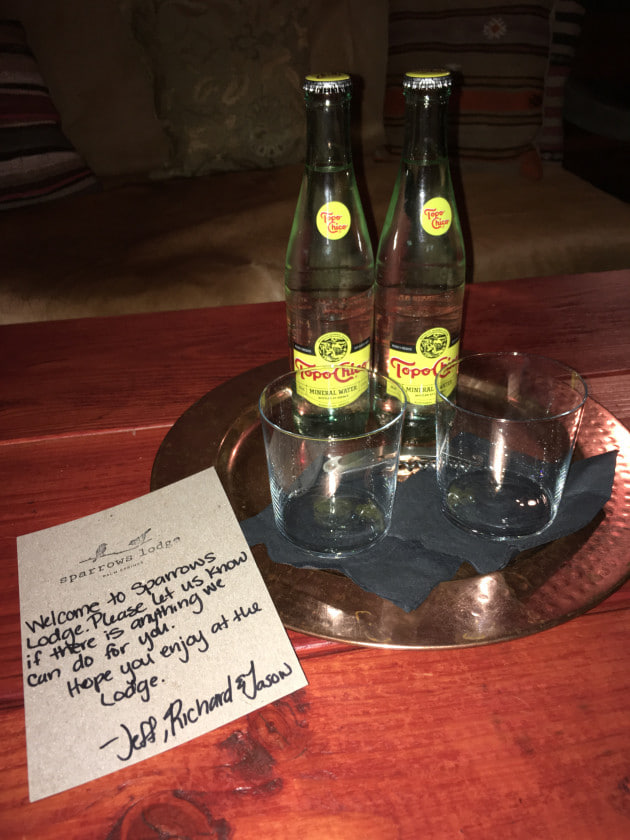 Topo
Chico
Topo
Chico
Topo Chico
MINERAL WATER
Topo Chico
MINERAL
sparrows lodge
PALM SPRINGS
Welcome to Sparrows
Lodge. Please let us know
if there is anything we
can do for you.
Hope you enjoy at the
Lodge.
-Jeff, Richard & Jason